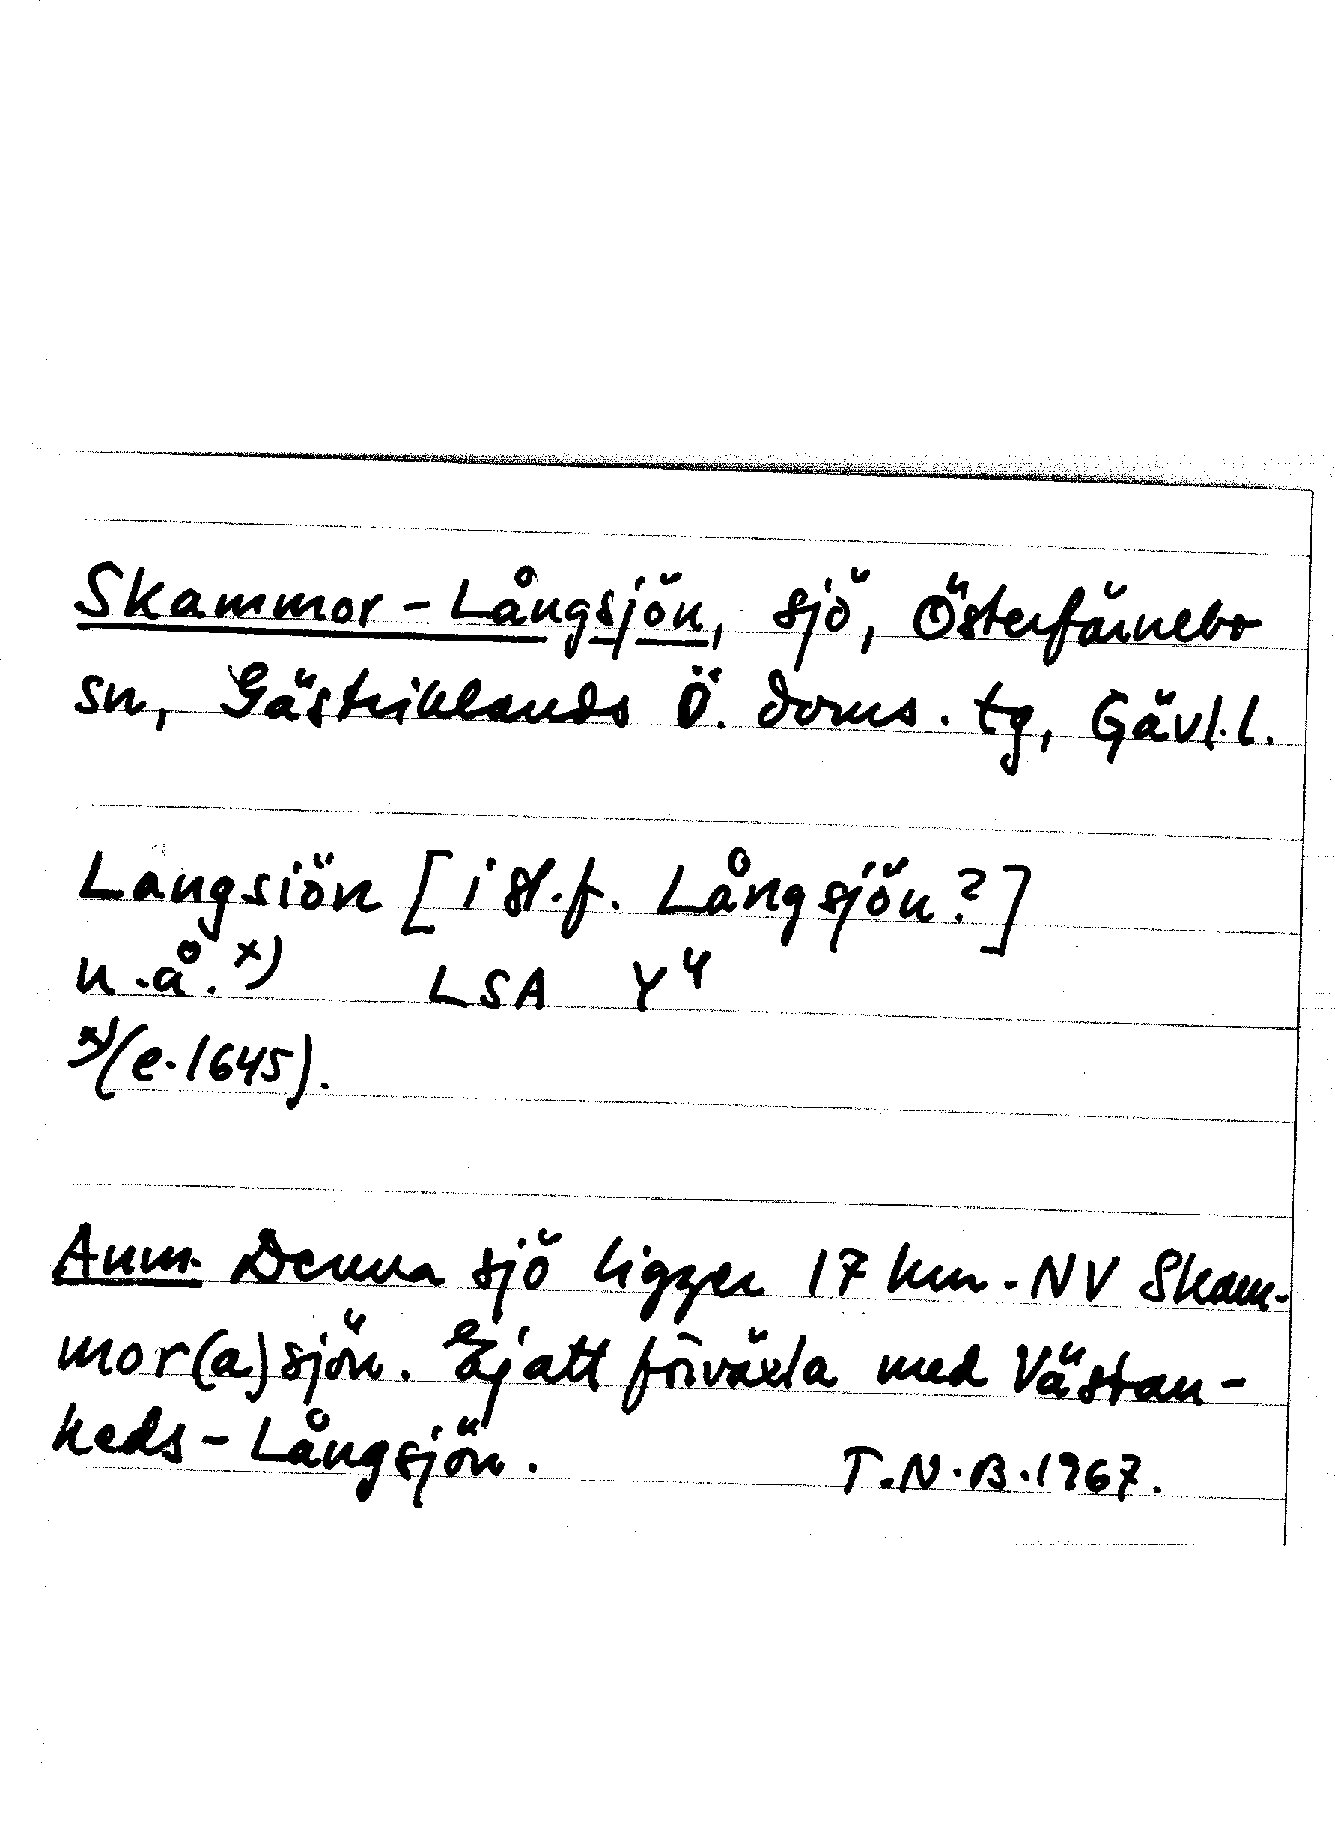 Skammor-Långsjön, sjö, Österfärnebo
sn, Gästriklands Ö. doms. tg, Gävl.l.
Langsiön [i st.f. Långsjön?]
u.å.x) LSA Y4
x)(e.1645).
Anm. Denna sjö ligger 17 km. NV Skam-
mor(a)sjön. Ej att förväxla med Västan-
heds-Långsjön. T.N.B.1967.